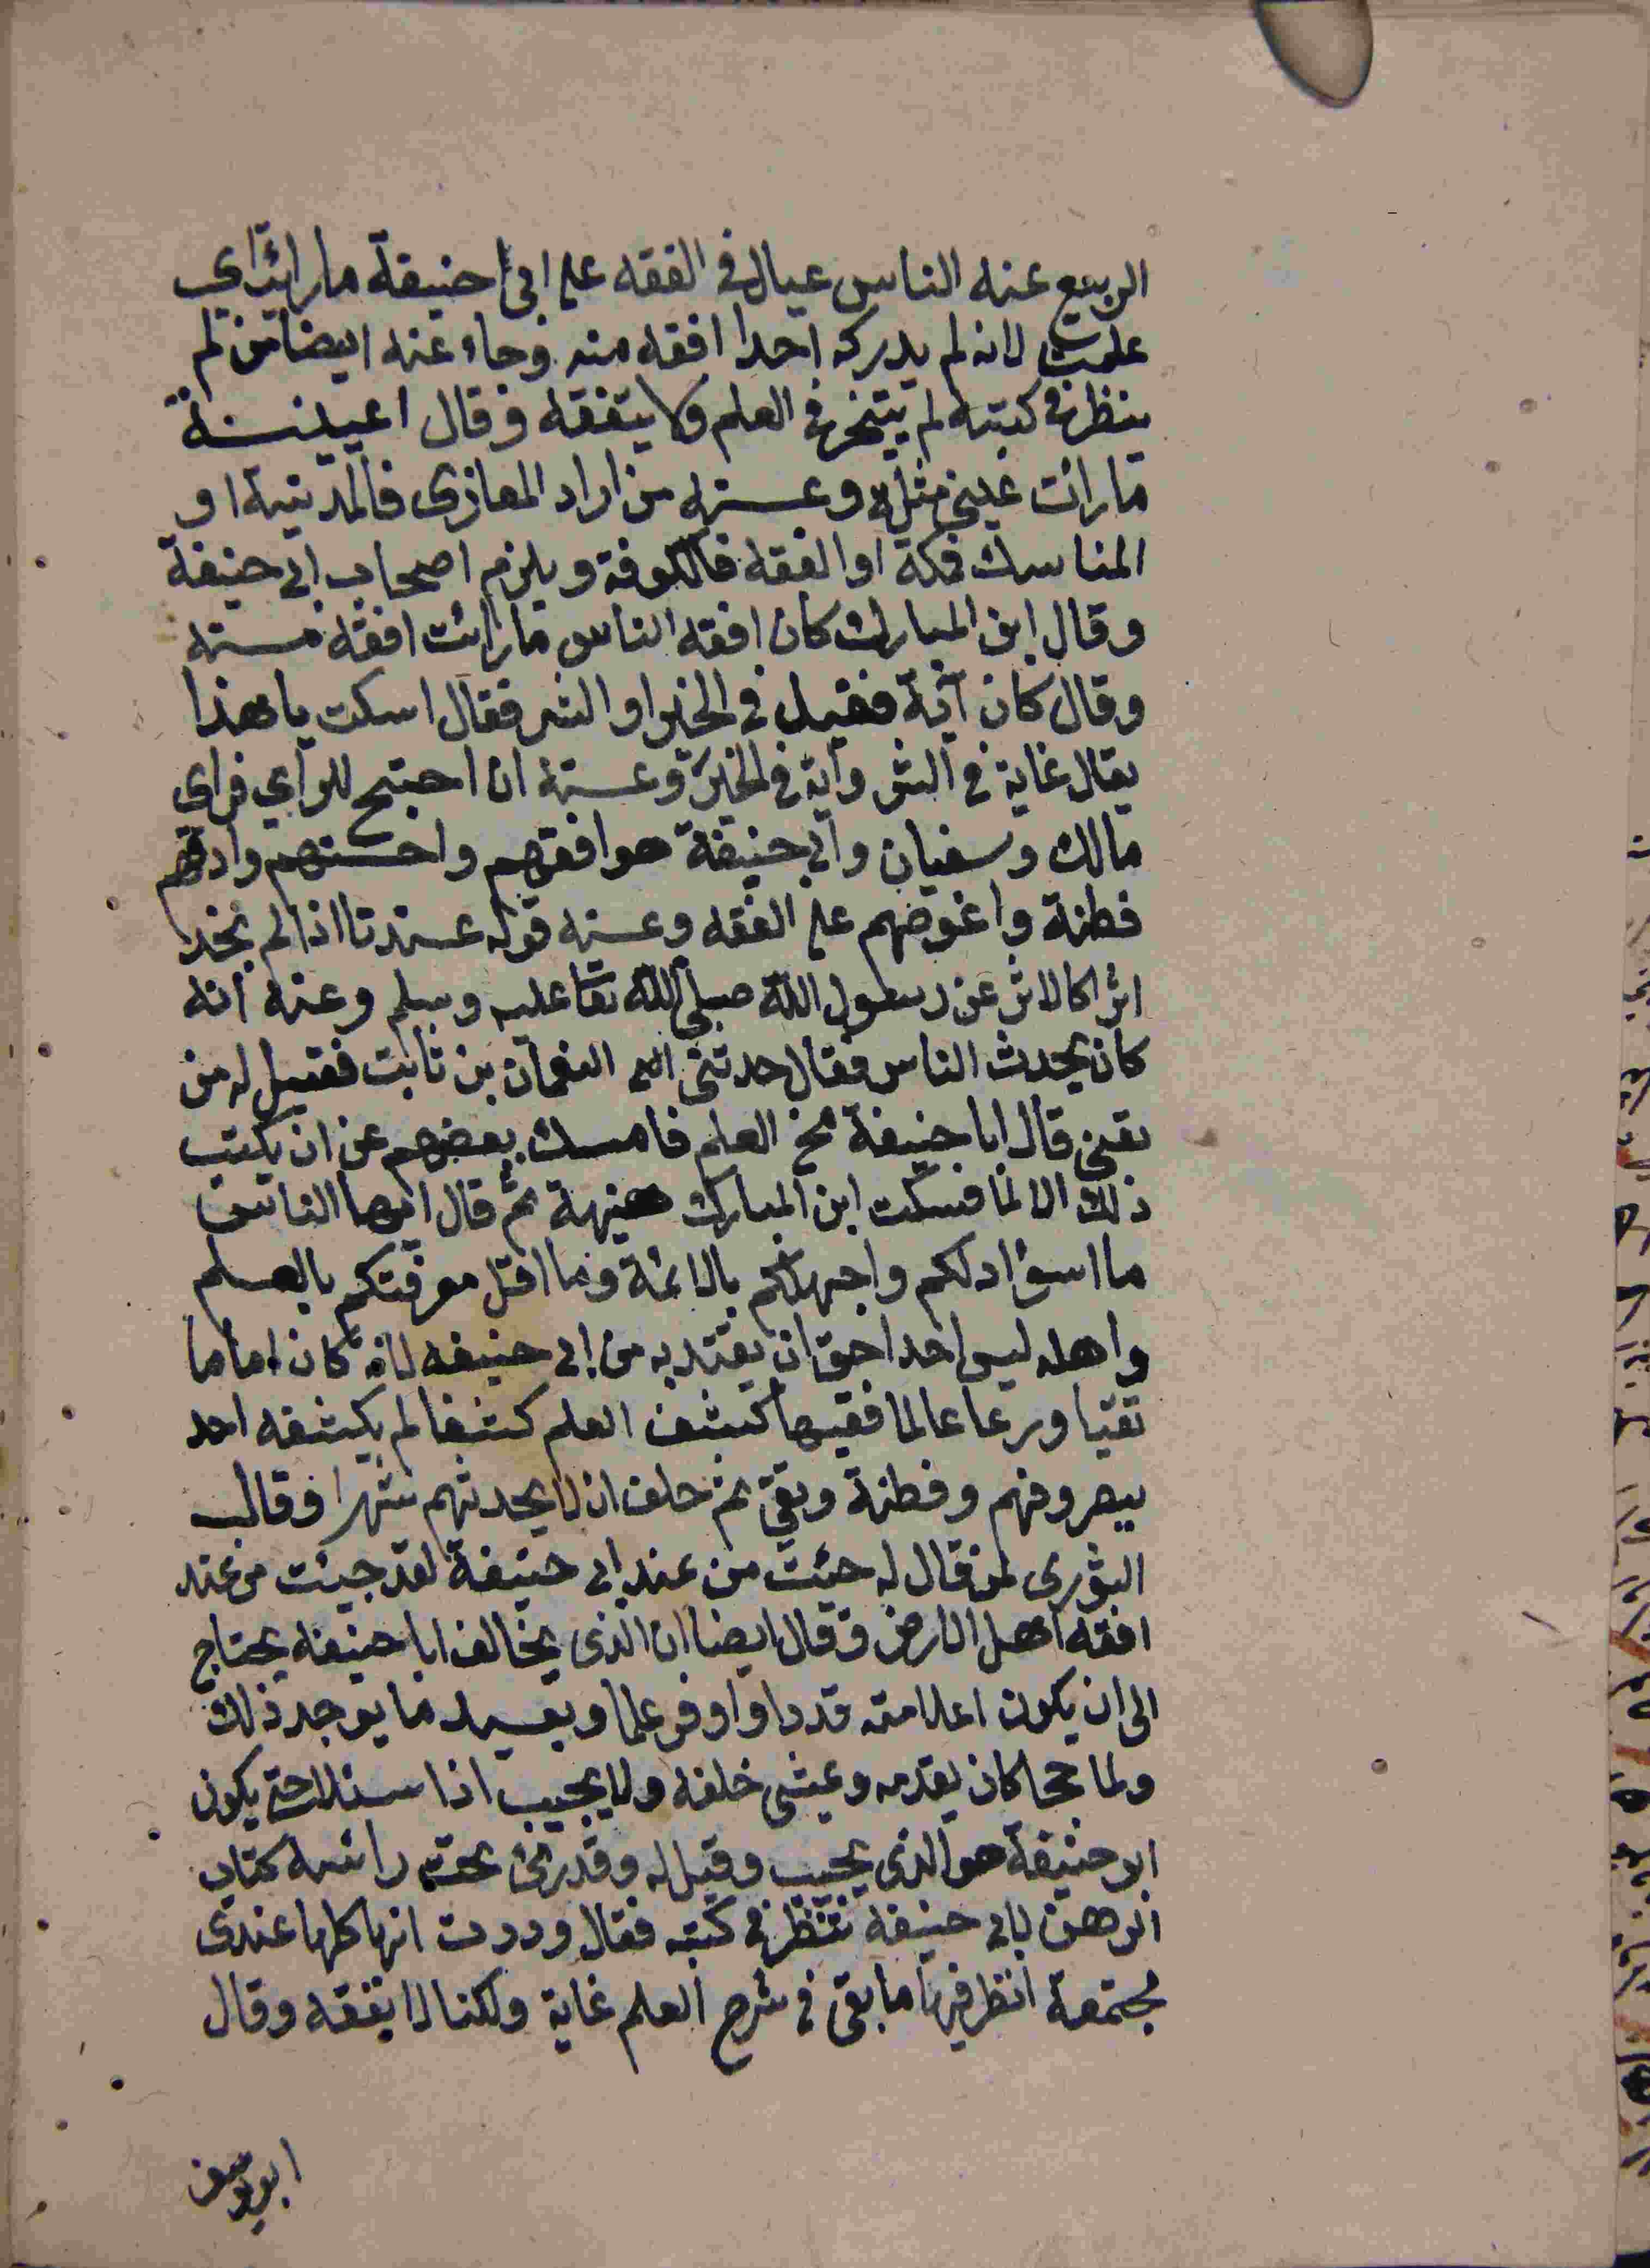 الربيع عنه الناس عيال في الفقه على ابي حنيفة ما رائت اي
علمت لانه لم يدرك احدا افقه منه وجاء عنه ايضا من لم
ينظر في كتبه لم يتبحر في العلم ولا يتفقه وقال ا عيينة
ما رائت عيني مثله وعنه من اراد المغازى فالمدينة او
المناسك فمكة او الفقه فالكوفة ويلزم اصحاب ابي حنيفة
وقال ابن المبارك كان افقه الناس ما رائت افقه منه
وقال كان آية فقيل في الخير او الشر فقال اسكت يا هذا
يقال غاية في الشر واية في الخير وعنه ان احتيج للراي فراى
مالك وسفيان وابي حنيفة هو افقههم واحسنهم وادقهم
فطنة واغوصهم على الفقه وعنه قوله عندنا اذا لم نجد
اثرا كالاثر عن رسول الله صلى الله تعا عليه وسلم وعنه انه
كان يحدث الناس فقال حدثني النعمان بن ثابت فقيل له من
تعني قال ابا حنيفة مخ العلم فامسك بعضهم عن ان يكتب
ذلك فسكت ابن المبارك هنيهة ثم قال ايها الناس
ما اسؤ ادبكم واجهلكم بالائمة وما اقل معرفتكم بالعلم
واهله ليس احد احق ان يقتد به من ابي حنيفه لانه كان اماما
تقيا ورعا عالما فقيها كشف العلم كشفا لم يكشفه احد
ببصر وفهم وفطنة وتقى ثم حلف ان لا يحدثهم شهرا وقال
الثورى لمن قال له جئت من عند ابي حنيفة لقد جيئت من عند
افقه اهل الارض وقال ايضا ان الذى يخالف ابا حنيفه يحتاج
الى ان يكون اعلا منه قدرا واوفر علما وبعيد ما يوجد ذلك
ولما حجا كان يقدمه ويمشى خلفه ولا يجيب اذا سئلا حتى يكون
ابو حنيفة هو الذى يجيب وقيل له وقد رئ تحت راسه كتاب
الرهن لابي حنيفه تنظر في كتبه فقال وددت انها كلها عندى
مجتمعة انظر فيها ما بقى في شرح العلم غاية ولكنا لا نفقه وقال
ابو يوسف